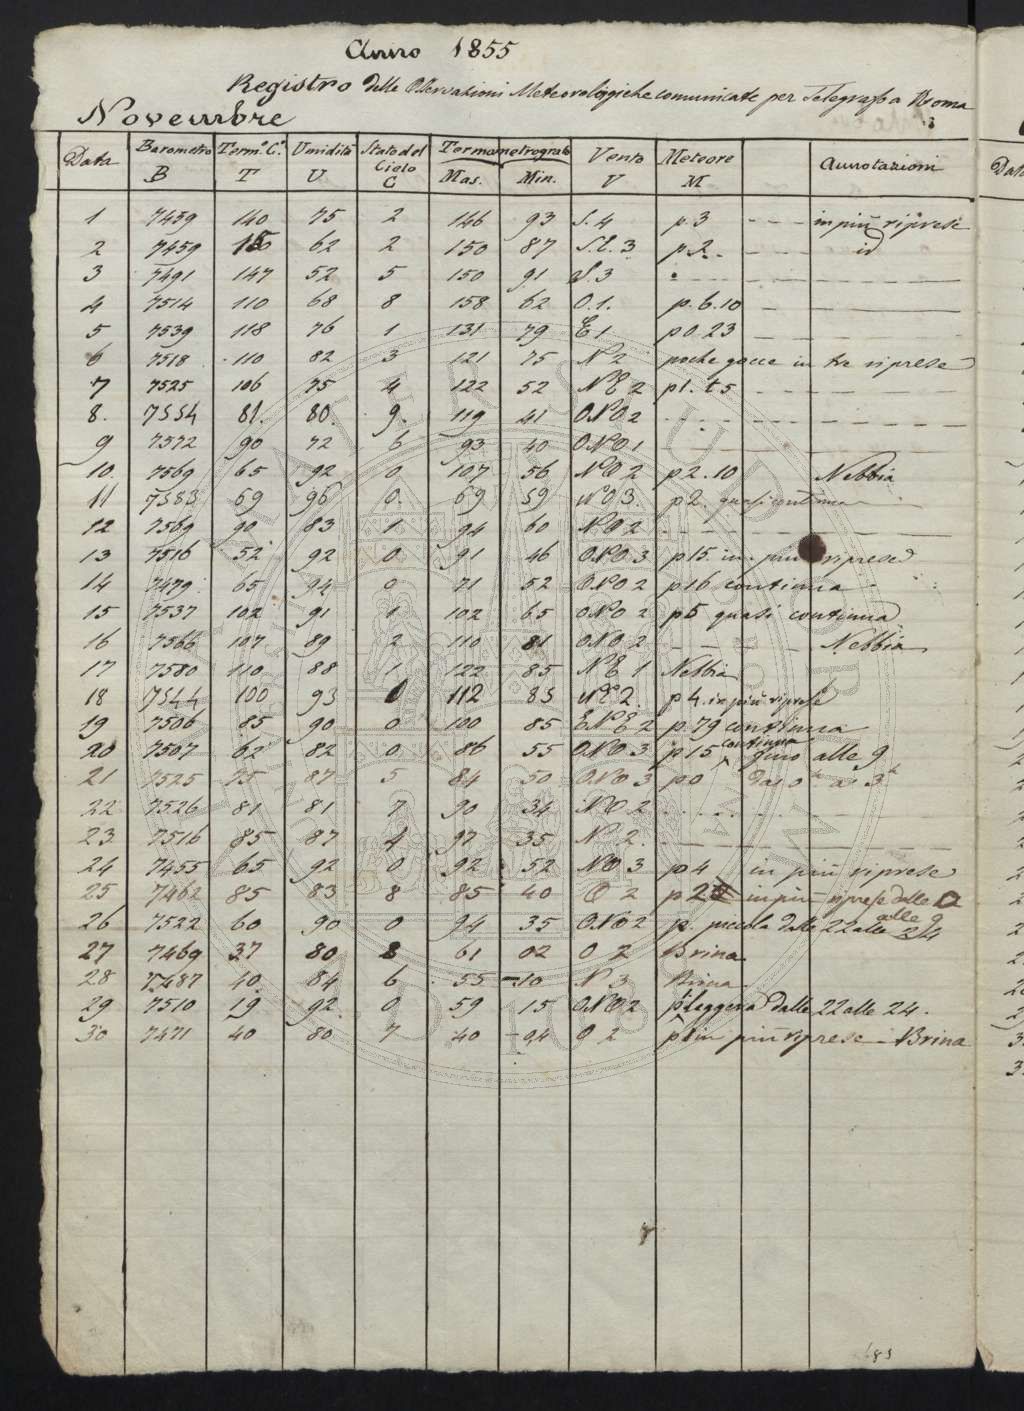 Anno 1855
Registro delle Osservazioni Meteorologgiche comunicate per Telegrafo a Roma
Novembre
Data Barometro B Term.º C.º T Umidità U Stato del Cielo C Termometrografo Mas. Min. Vento V Meteore M Annotazioni
1 7459 140 75 2 146 93 S. 4 p. 3 - - - in più riprese
2 7459 62 2 150 87 3 p. 2. - - - id
3 7491 147 52 5 150 91 S. 3
4 7514 110 68 8 158 62 O. 1. p. 6. 10
5 7539 118 76 1 131 79 E 1 p 0. 23
6 7518 110 82 3 121 75 N 2 poche gocce in tre riprese
7 7525 106 75 4 122 52 N E 2 p 1. t 5
8. 7554 81. 80. 9. 119 41 O.N.O. 2
9 7572 90 72 6 93 40 O.N.O. 1
10. 7569 65 92 0 107 56 N O 2 p 2. 10 Nebbia
11 7583 69 96 0. 69 59 N O 3. p 2. quasi continua
12 7569 90 83 1 94 60 N O 2
13 7516 52 92 0 91 46 O.N.O. 3 p 15. in più riprese
14 7479 65 94 0 71 52 O.N.O 2 p 16 continua
15 7537 102 91 1 102 65 O.N.O 2 p 5 quasi continua
16 7566 107 89 2 110 81 O.N.O. 2 - - - - Nebbia
17 7580 110 88 1 122 85 N E 1 Nebbia
18 7544 100 93 112 85 2. p 4. in più riprese
19 7506 85 90 0 100 85 E.N.E. 2 p. 79 continua
20 7507 62 82 0 86 55 O.N.O. 3 p 15 continua fino alle 9
21 7525 75 87 5 84 50 O.N.O 3 p 0
22 7526 81 81 7 90 34 N O 2
23 7516 85 87 4 97 35 N 2.
24 7455 65 92 0 92 52 N O 3 p 4 in più riprese
25 7462 85 83 8 85 40 O 2 p in più riprese dalle
26 7522 60 90 0 94 35 O.N.O 2 p. piccola dalle 22 alle 24
27 7469 37 80 8 61 02 O 2 Brina
28 7487 40 84 6 55 -10 N 3 Brina
29 7510 19 92 0 59 15 O.N.O 2 p leggera dalle 22 alle 24.
30 7471 40 80 7 40 -04 O 2 p 1 in più riprese - Brina